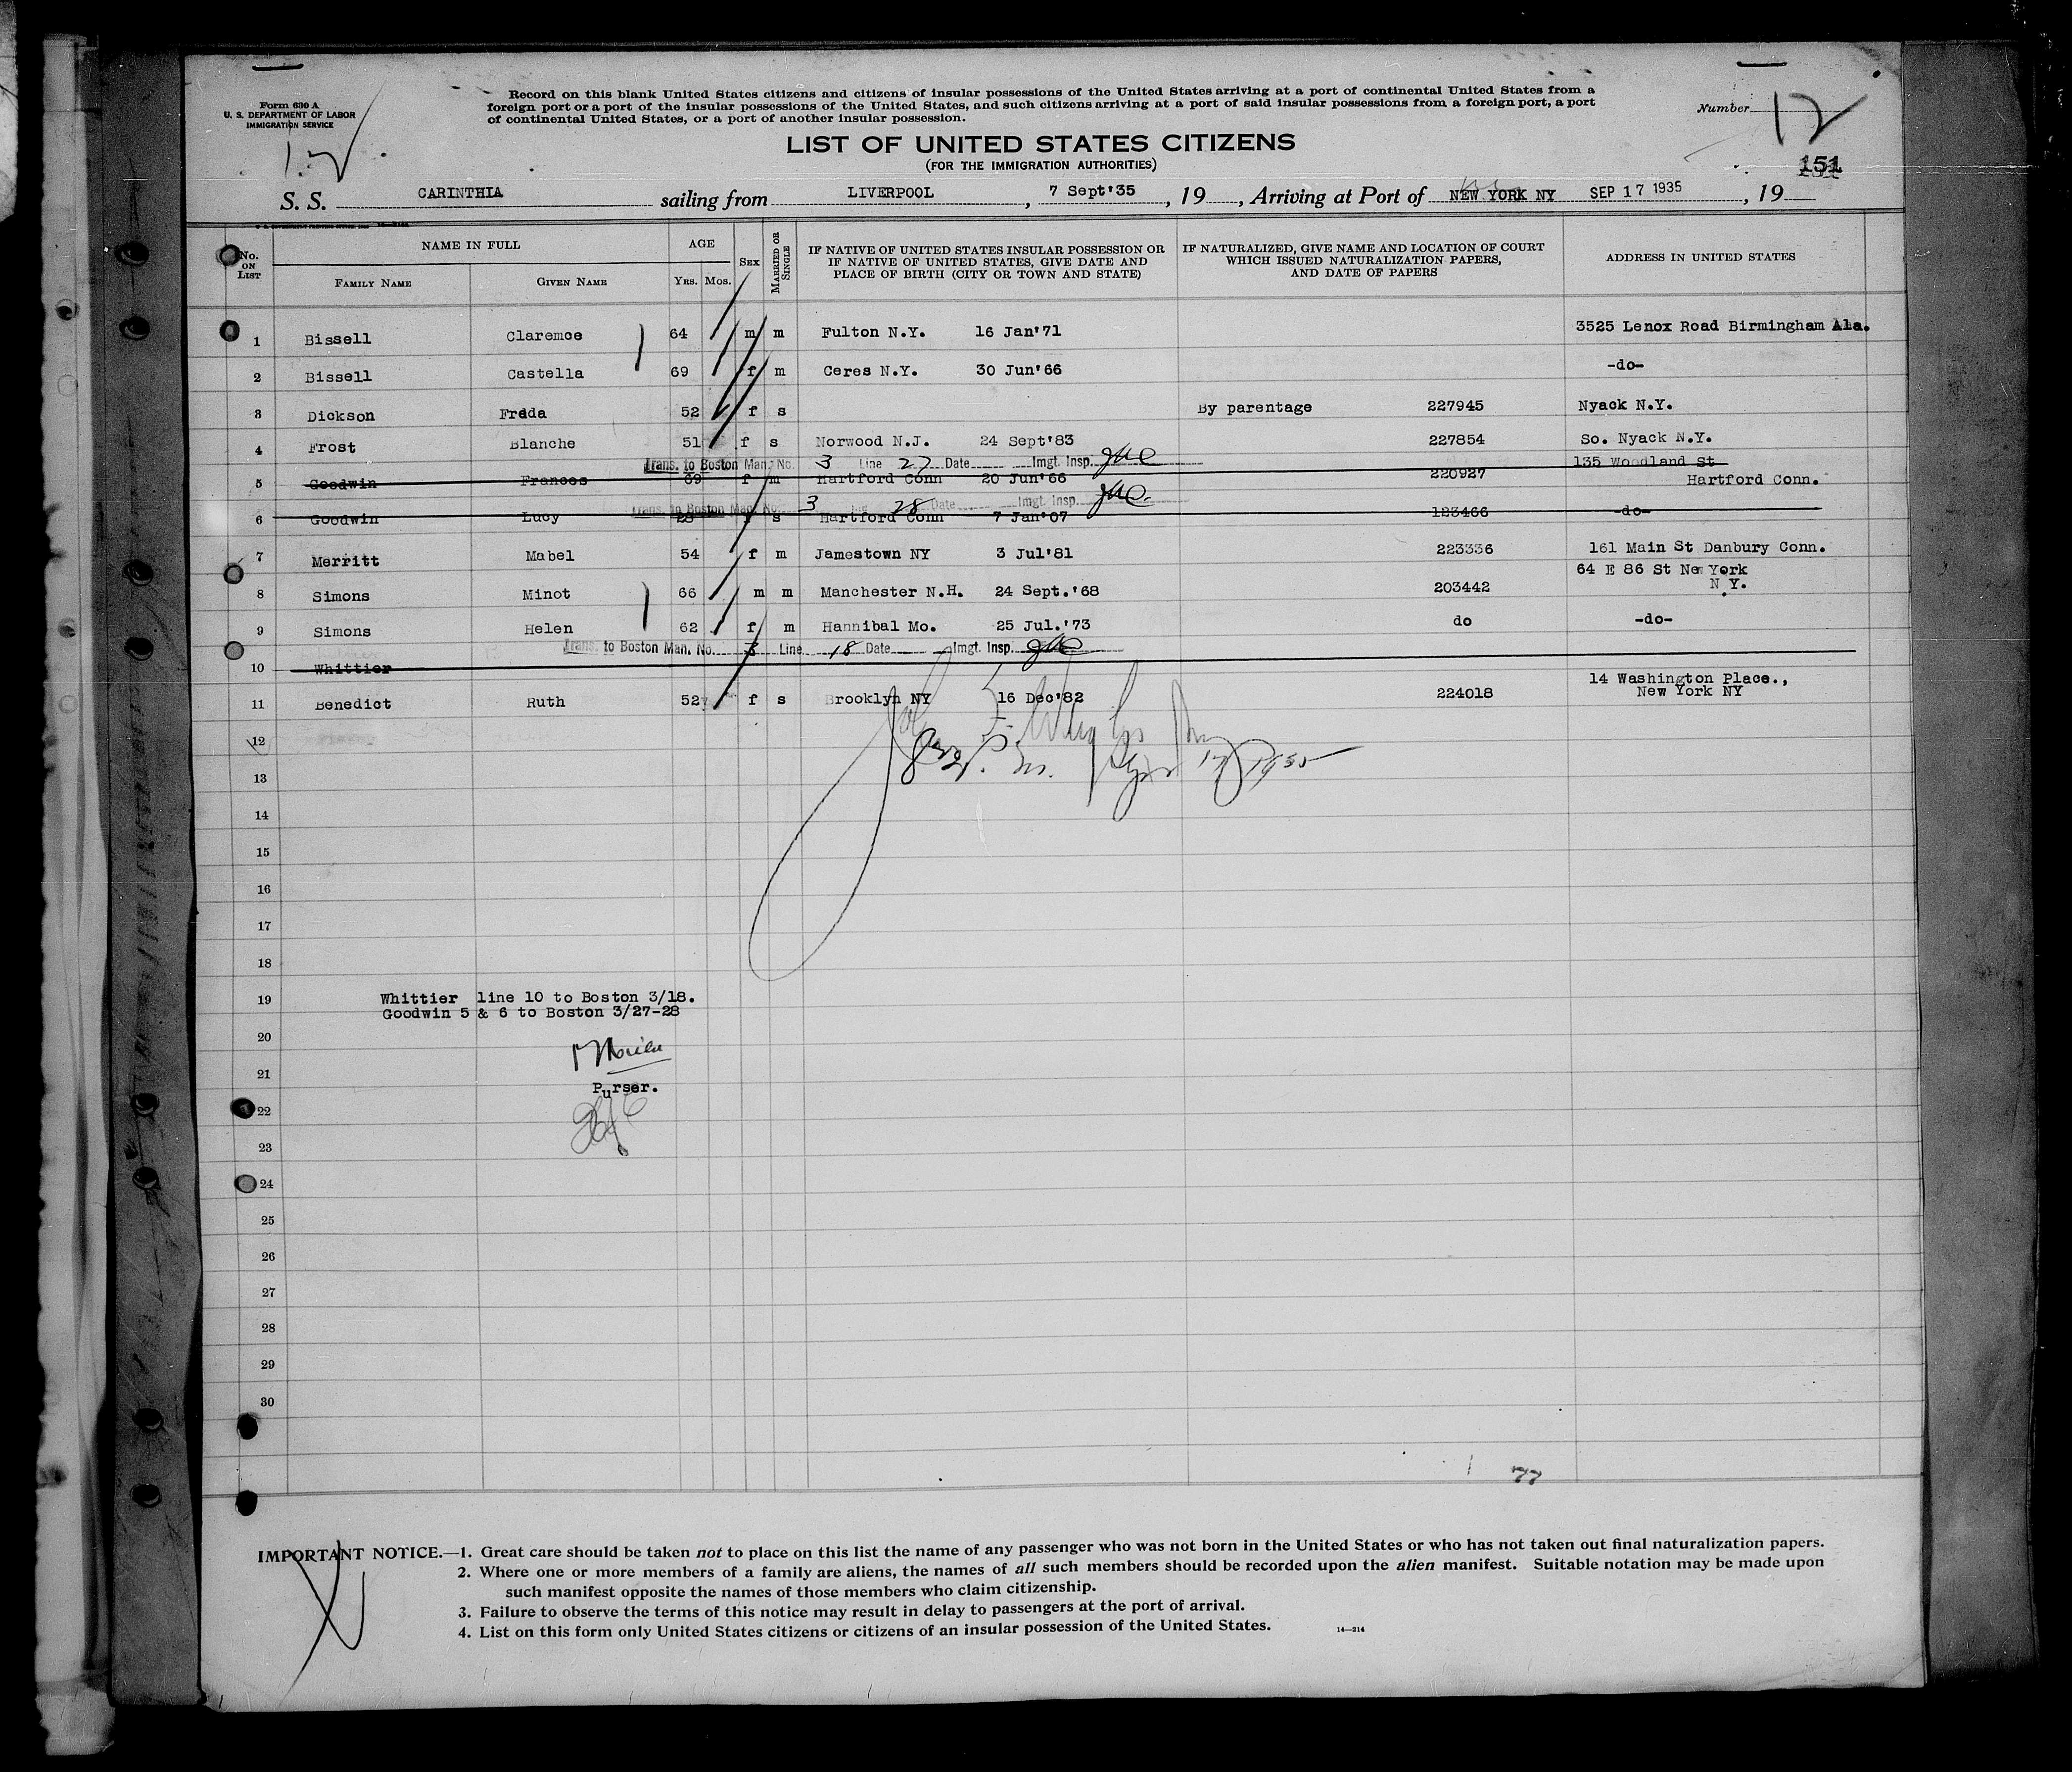 Form 630 A
U. S. DEPARTMENT OF LABOR
IMMIGRATION SERVICE
Record on this blank United States citizens and citizens of insular possessions of the United States arriving at a port of continental United States from a
foreign port or a port of the insular possessions of the United States, and such citizens arriving at a port of said insular possessions from a foreign port, a port
of continental United States, or a port of another insular possession.
Number 12
LIST OF UNITED STATES CITIZENS
(FOR THE IMMIGRATION AUTHORITIES)
151
S. S. CARINTHIA sailing from LIVERPOOL, 7 Sept'35, 19, Arriving at Port of NEW YORK NY SEP 17 1935, 19
No. ON LIST
NAME IN FULL
FAMILY NAME GIVEN NAME
AGE
YRS. MOS.
SEX
MARRIED OR SINGLE
IF NATIVE OF UNITED STATES INSULAR POSSESSION OR
IF NATIVE OF UNITED STATES, GIVE DATE AND
PLACE OF BIRTH (CITY OR TOWN AND STATE)
IF NATURALIZED, GIVE NAME AND LOCATION OF COURT
WHICH ISSUED NATURALIZATION PAPERS,
AND DATE OF PAPERS
ADDRESS IN UNITED STATES
1 Bissell Claremce 64 m m Fulton N.Y. 16 Jan'71 3525 Lenox Road Birmingham Ala.
2 Bissell Castella 69 f m Ceres N.Y. 30 Jun'66 -do-
3 Dickson Freda 52 f s By parentage 227945 Nyack N.Y.
4 Frost Blanche 51 f s Norwood N.J. 24 Sept'83 227854 So. Nyack N.Y.
Trans. to Boston Man. No. 3 Line 27 Date Imgt. Insp.
135 Woodland St
5 Goodwin Frances 69 f m Hartford Conn 20 Jun'66 220927 Hartford Conn.
Trans. to Boston Man. No. 3 Line 28 Date Imgt. Insp.
6 Goodwin Lucy 28 f s Hartford Conn 7 Jan'07 123466 -do-
7 Merritt Mabel 54 f m Jamestown NY 3 Jul'81 223336 161 Main St Danbury Conn.
64 E 86 St New York
8 Simons Minot 66 m m Manchester N.H. 24 Sept.'68 203442 N.Y.
9 Simons Helen 62 f m Hannibal Mo. 25 Jul.'73 do -do-
Trans. to Boston Man. No. 3 Line 18 Date Imgt. Insp.
10 Whittier
14 Washington Place.,
11 Benedict Ruth 52 f s Brooklyn NY 16 Dec'82 224018 New York NY
12
13
14
15
16
17
18
19 Whittier line 10 to Boston 3/18.
Goodwin 5 & 6 to Boston 3/27-28
20
21
Purser.
22
23
24
25
26
27
28
29
30
77
IMPORTANT NOTICE.—1. Great care should be taken not to place on this list the name of any passenger who was not born in the United States or who has not taken out final naturalization papers.
2. Where one or more members of a family are aliens, the names of all such members should be recorded upon the alien manifest. Suitable notation may be made upon
such manifest opposite the names of those members who claim citizenship.
3. Failure to observe the terms of this notice may result in delay to passengers at the port of arrival.
4. List on this form only United States citizens or citizens of an insular possession of the United States.
14—214